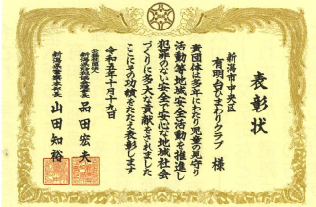 表彰状
新潟市中央区
有明台ひまわりクラブ 様
貴団体は多年にわたり児童の見守り
活動等地域安全活動を推進し
犯罪のない安全で安心な地域社会
づくりに多大な貢献をされました
ここにその功績をたたえ表彰します
令和五年十月十九日
品田宏夫
新潟県警察本部長
山田知裕